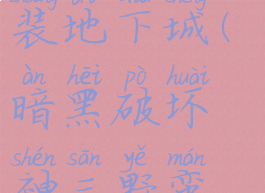 装地下城(
àn hēi pò huài
暗黑破坏
shén sān yě mán
神三野蛮